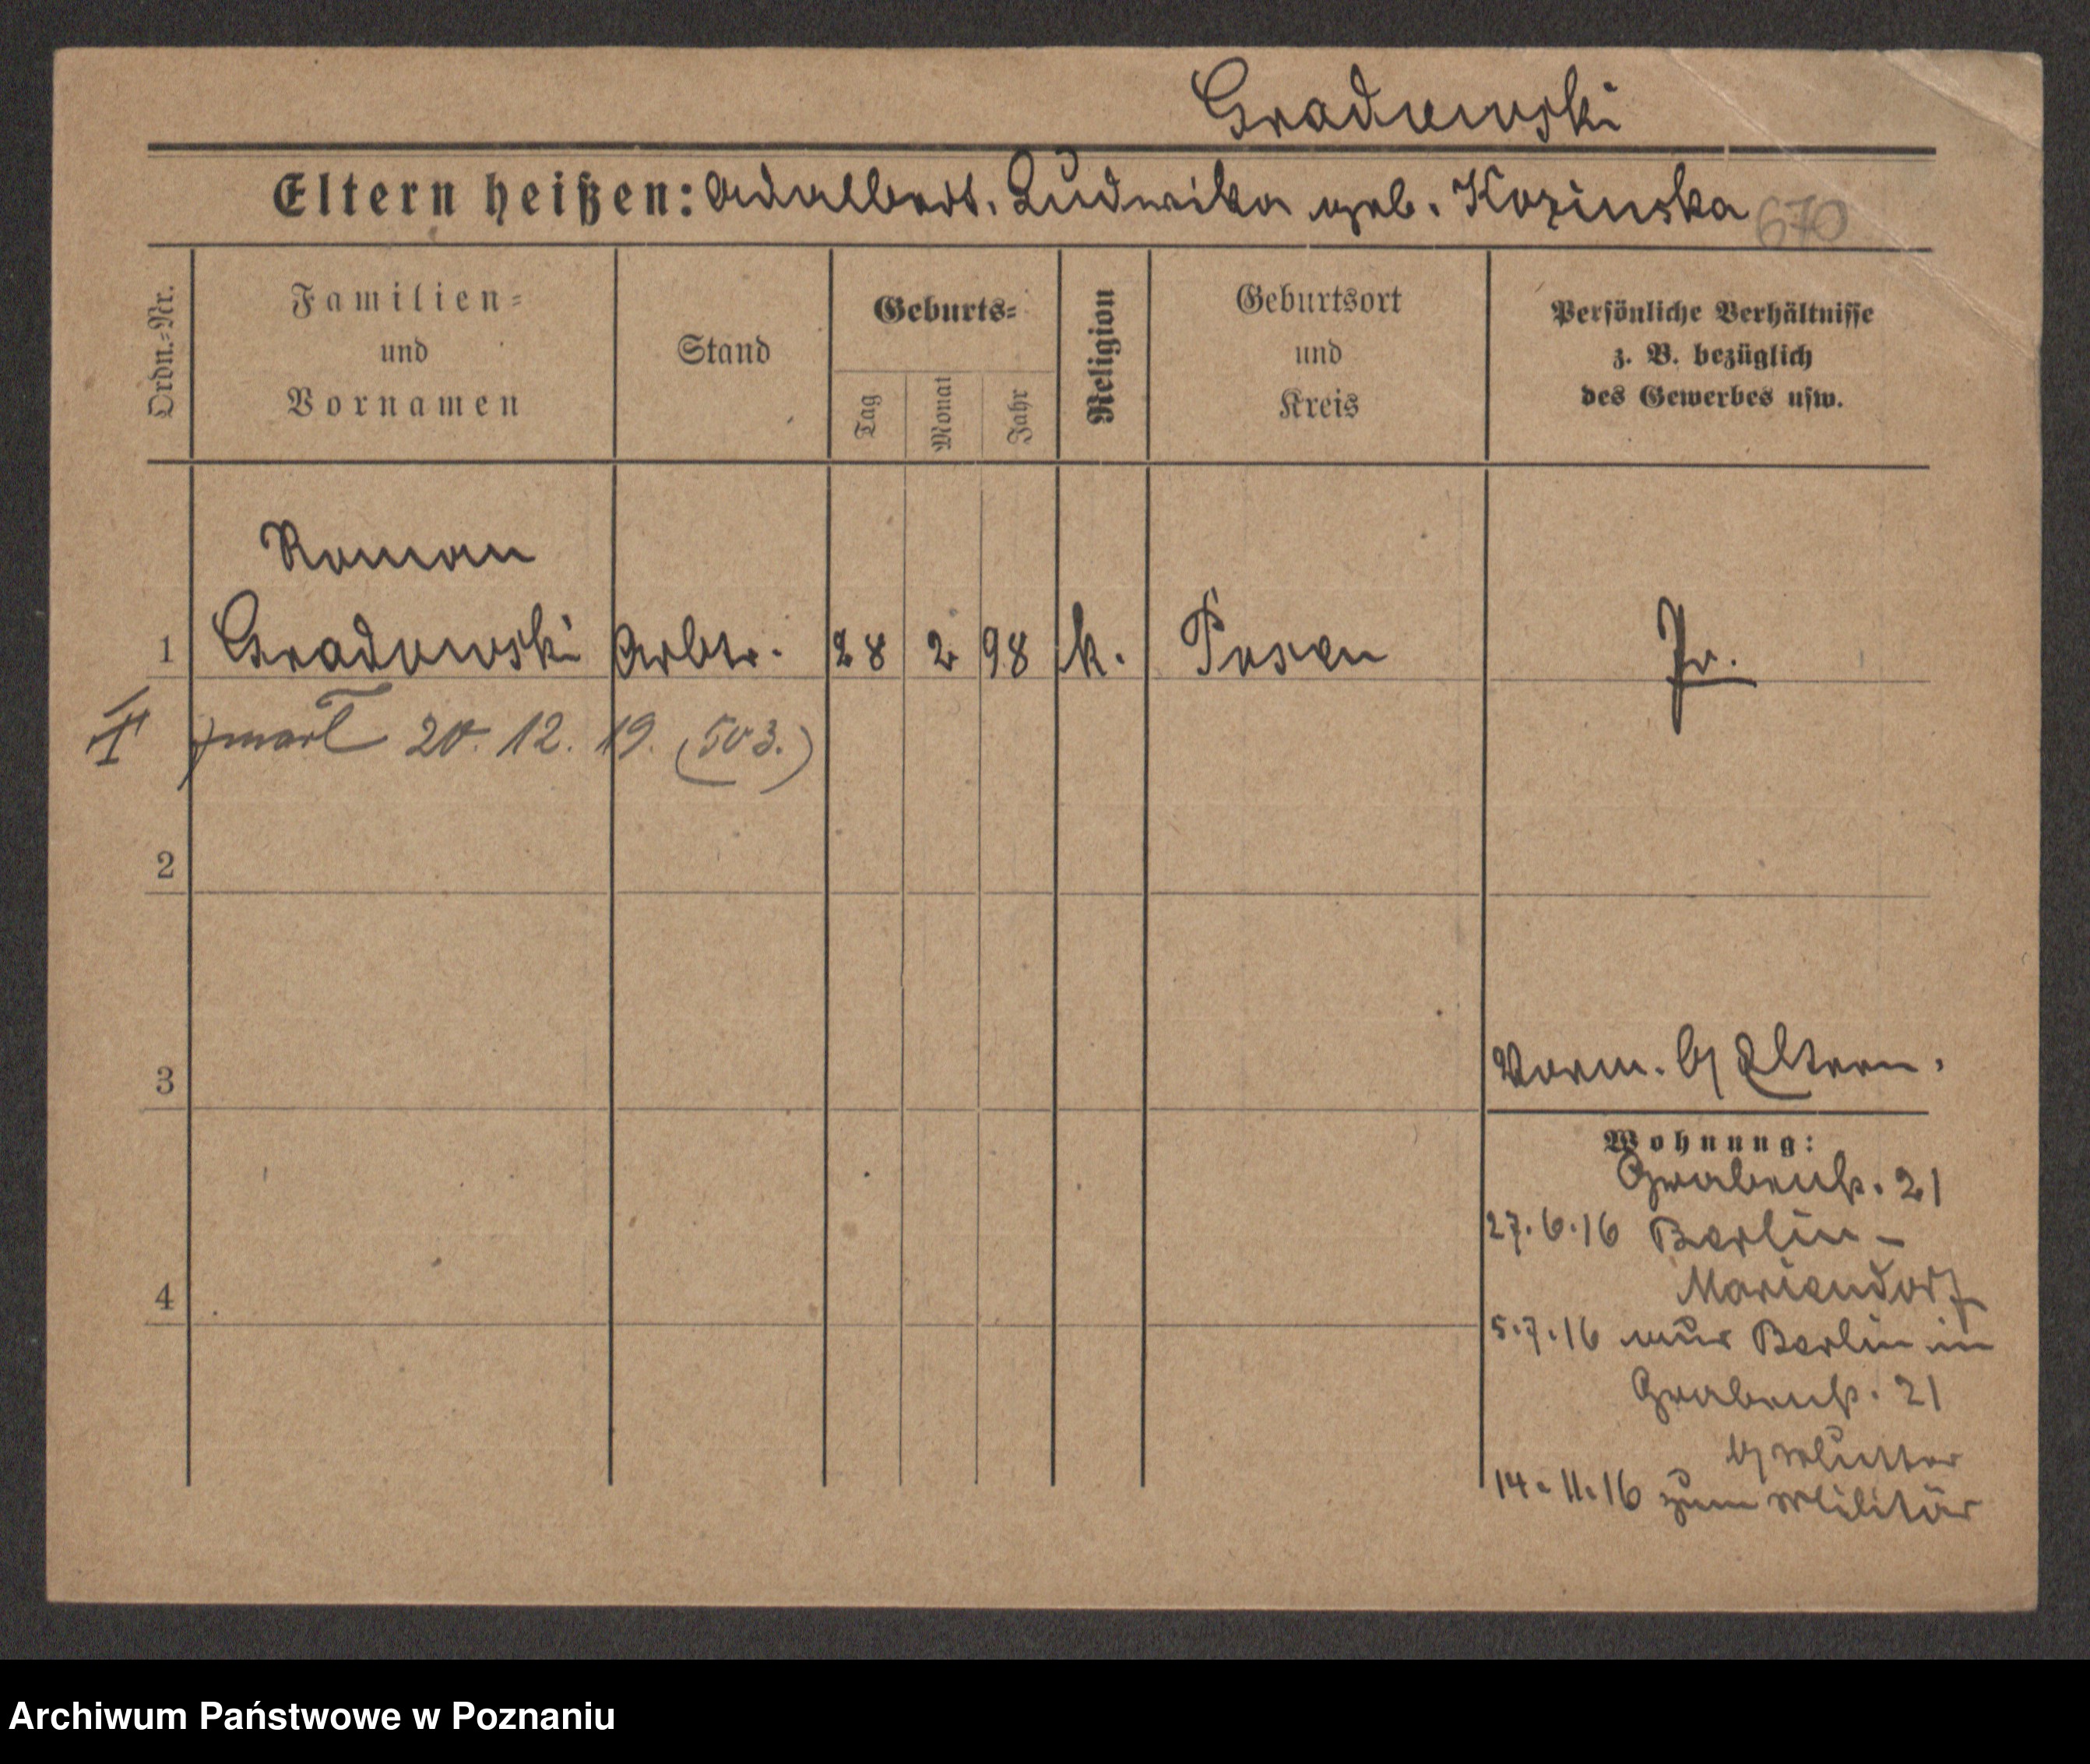 Gradowski
Eltern heißen: Adalbert. Ludwika geb. Kozinska 670
Ordn.-Nr.
Familien-
und
Vornamen
Stand
Geburts-
Tag
Monat
Jahr
Religion
Geburtsort
und
Kreis
Persönliche Verhältnisse
z. B. bezüglich
des Gewerbes usw.
Roman
1 Gradowski Arbtr. 28 2 98 k. Posen Pr.
zmarł 20. 12. 19. (503.)
2
3
Vorm. b/ Eltern.
Wohnung:
Grabenstr. 21
27.6.16 Berlin-
Mariendorf
4
5.7.16 nur Berlin in
Grabenstr. 21
b/ Mutter
14.11.16 zum Militär
Archiwum Państwowe w Poznaniu